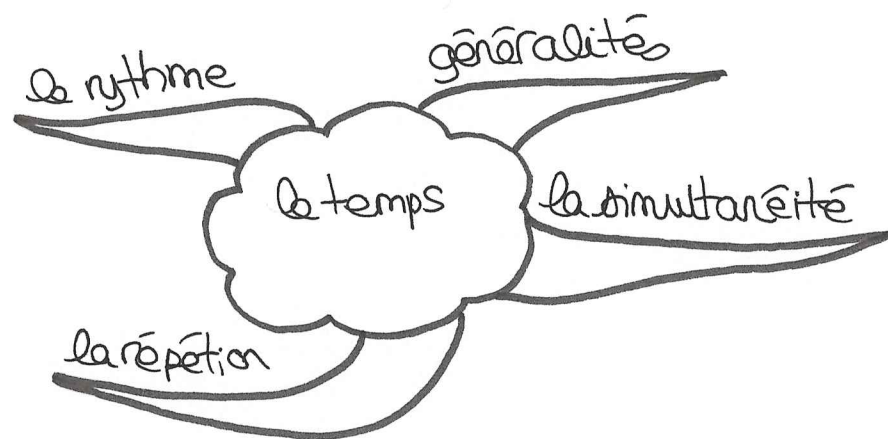 le rythme
généralités
le temps
la simultanéité
la répétion